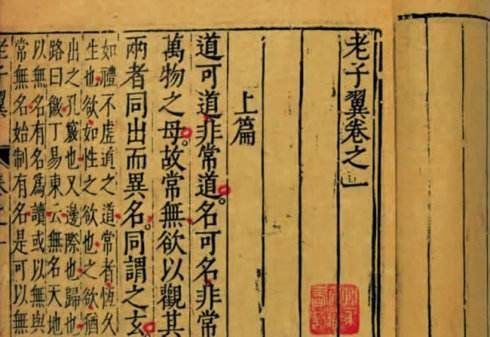 老子翼卷之一
上篇
道可道非常道名可名非常
萬物之母故常無欲以觀其
兩者同出而異名同謂之玄
如禮不虛道之道常者恆久
生也欲如性之欲也之欲猶
出之孔竅也又邊際也歸也
路曰徼丁易東云無名天地
以無名有名為讀或以無與
常無名始制有名是可以無
老子翼 卷之一